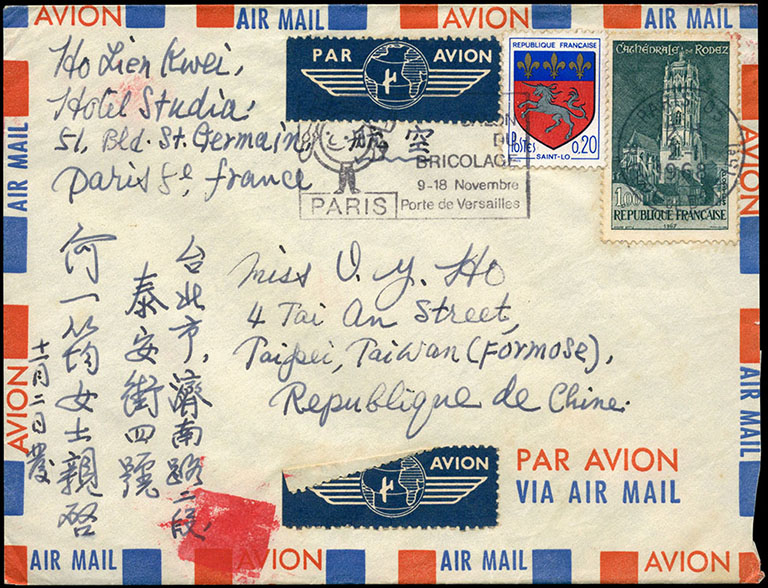 AVION
AIR MAIL
AVION
AIR MAIL
Ho Lien Kwei,
Hotel Studia
51, Bld. St. Germain
Paris 5e, France
PAR AVION
航空
SALON
DU
BRICOLAGE
9-18 Novembre
Porte de Versailles
PARIS
REPUBLIQUE FRANÇAISE
POSTES 0,20
SAINT-LO
CATHÉDRALE DE RODEZ
1968
1,00
REPUBLIQUE FRANÇAISE
1967
AIR MAIL
AVION
AVION
AIR MAIL
台北市,濟南路二段,
泰安街四號
何一筠女士親啓
十一月二日發
Miss O. Y. Ho
4 Tai An Street,
Taipei, Taiwan (Formose),
Republique de Chine.
AVION
PAR AVION
VIA AIR MAIL
AVION
AIR MAIL
AIR MAIL
AVION
AIR MAIL
AVION
AIR MAIL
AVION